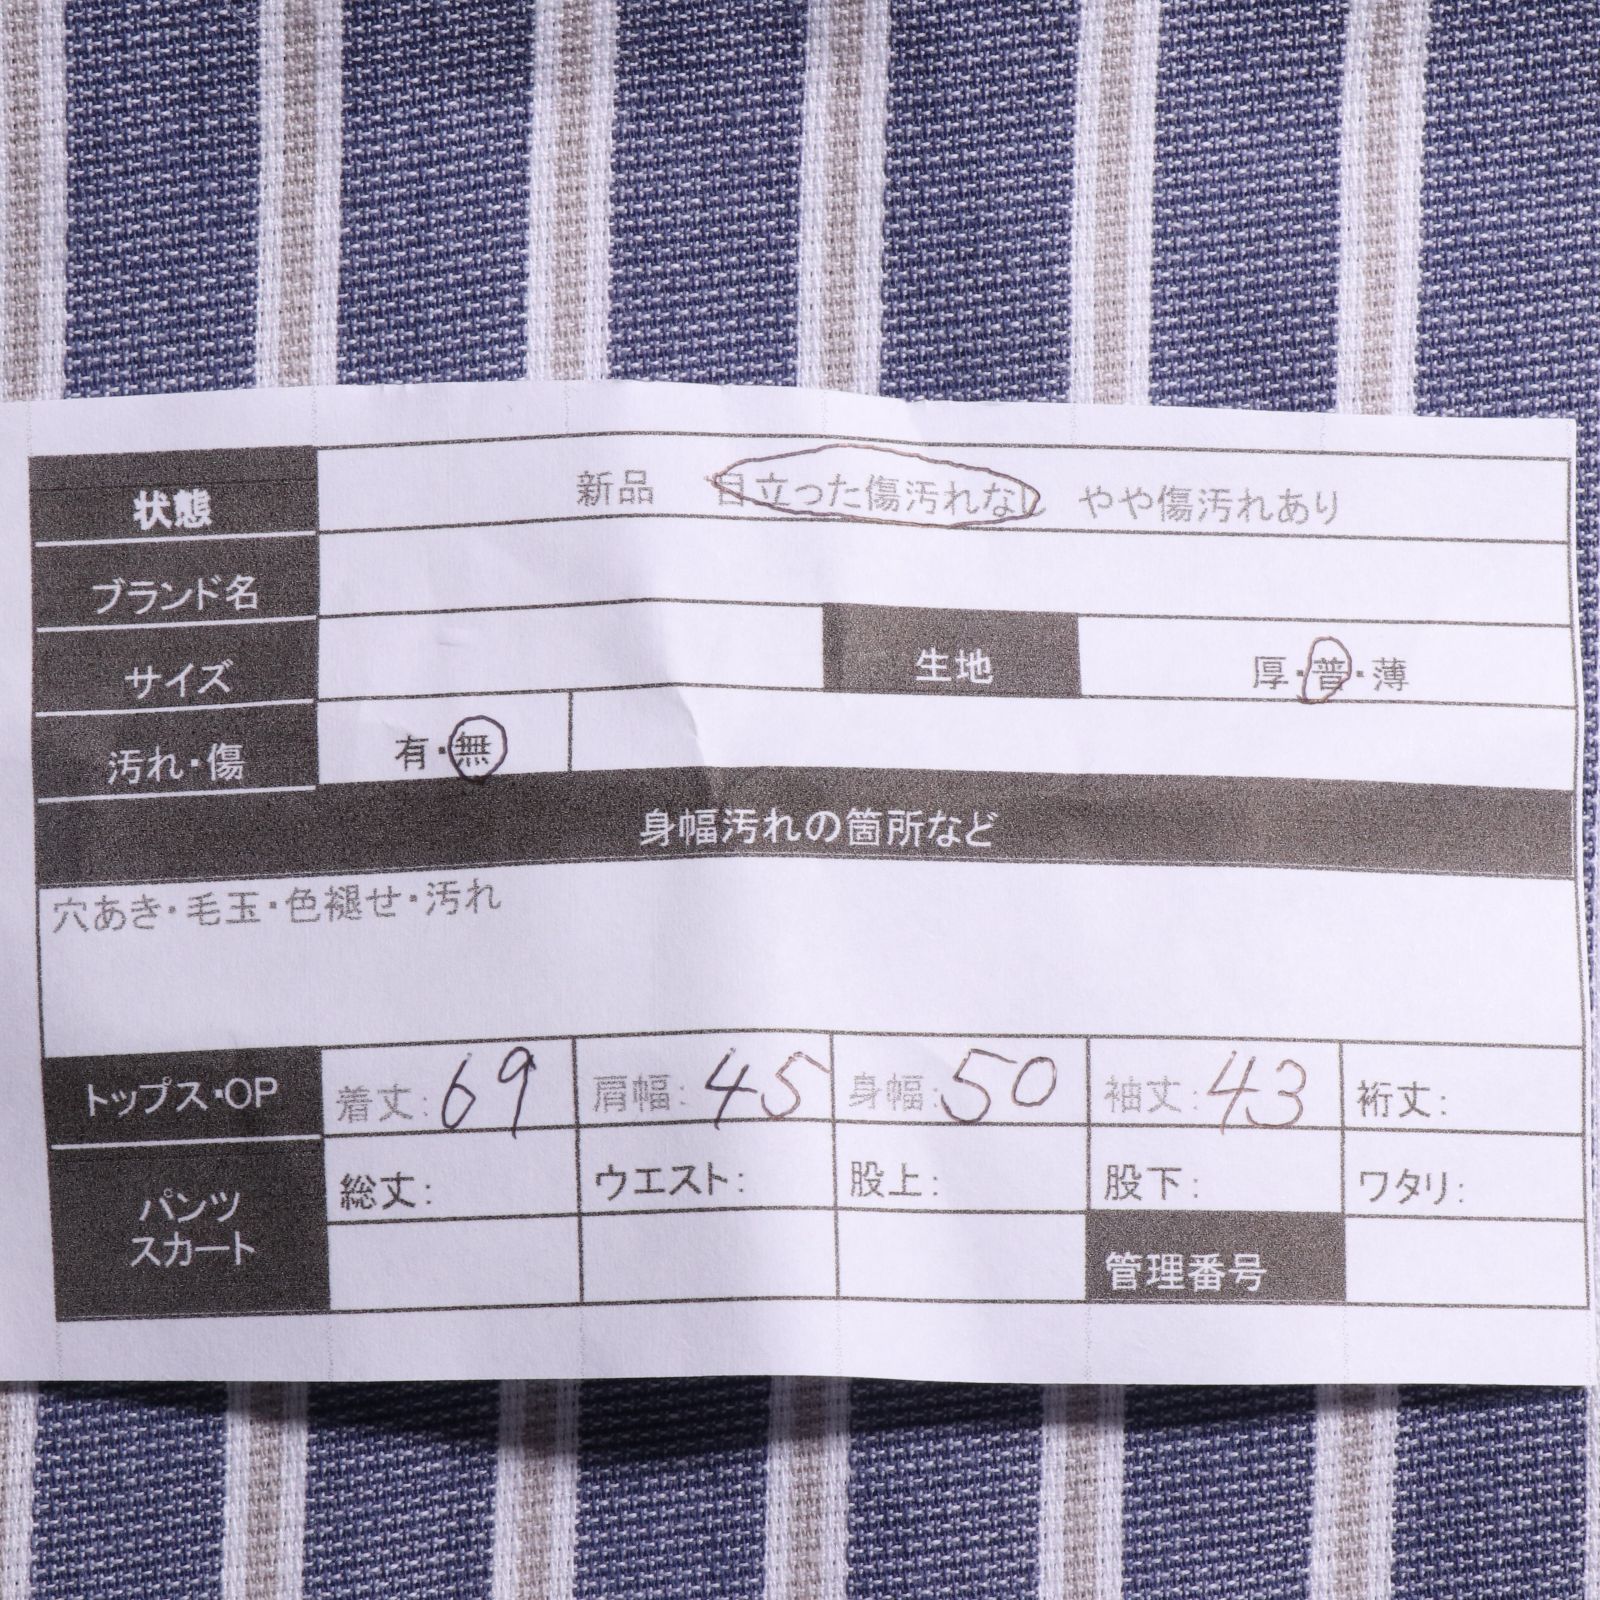 状態 新品 目立った傷汚れなし やや傷汚れあり
ブランド名
サイズ 生地 厚・普・薄
汚れ・傷 有・無
身幅汚れの箇所など
穴あき・毛玉・色褪せ・汚れ
トップス・OP 着丈: 69 肩幅: 45 身幅: 50 袖丈: 43 裄丈:
パンツ
スカート
総丈: ウエスト: 股上: 股下: ワタリ:
管理番号